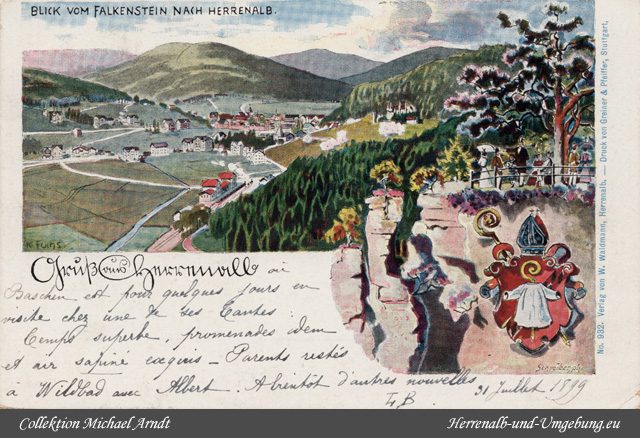 BLICK VOM FALKENSTEIN NACH HERRENALB.
K. Fuchs.
Gruß aus Herrenalb où
Baschen est pour quelques jours en
visite chez une de ses tantes.
Temps superbe, promenades idem
et air sapiné exquis — Parents restés
à Wildbad avec Albert. A bientôt d'autres nouvelles
31 Juillet 1899
No. 932. Verlag von W. Waldmann, Herrenalb. — Druck von Greiner & Pfeiffer, Stuttgart.
Collektion Michael Arndt
Herrenalb-und-Umgebung.eu